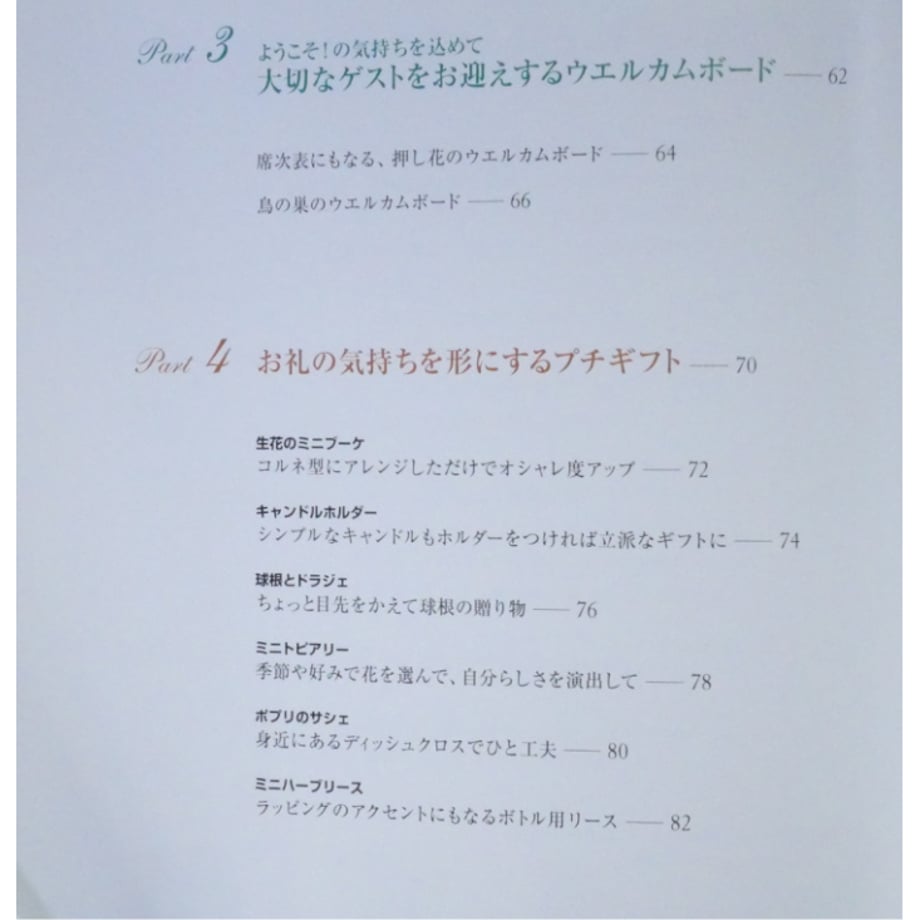 Part 3 ようこそ！の気持ちを込めて
大切なゲストをお迎えするウエルカムボード — 62
席次表にもなる、押し花のウエルカムボード — 64
鳥の巣のウエルカムボード — 66
Part 4 お礼の気持ちを形にするプチギフト — 70
生花のミニブーケ
コルネ型にアレンジしただけでオシャレ度アップ — 72
キャンドルホルダー
シンプルなキャンドルもホルダーをつければ立派なギフトに — 74
球根とドラジェ
ちょっと目先をかえて球根の贈り物 — 76
ミニトピアリー
季節や好みで花を選んで、自分らしさを演出して — 78
ポプリのサシェ
身近にあるディッシュクロスでひと工夫 — 80
ミニハーブリース
ラッピングのアクセントにもなるボトル用リース — 82